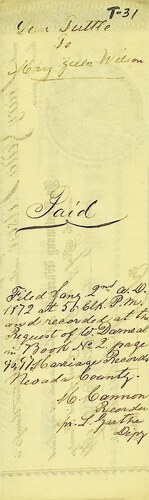 T-31
Geo Tuttle
To
Mary Zella Wilson
Paid
Filed Jany 2nd A.D.
1872 at 5 Clk P.M.
and recorded at the
Request of W. Darneal
in Book No 2 page
Marriage Records
Nevada County.
Cannon
Recorder
Depy